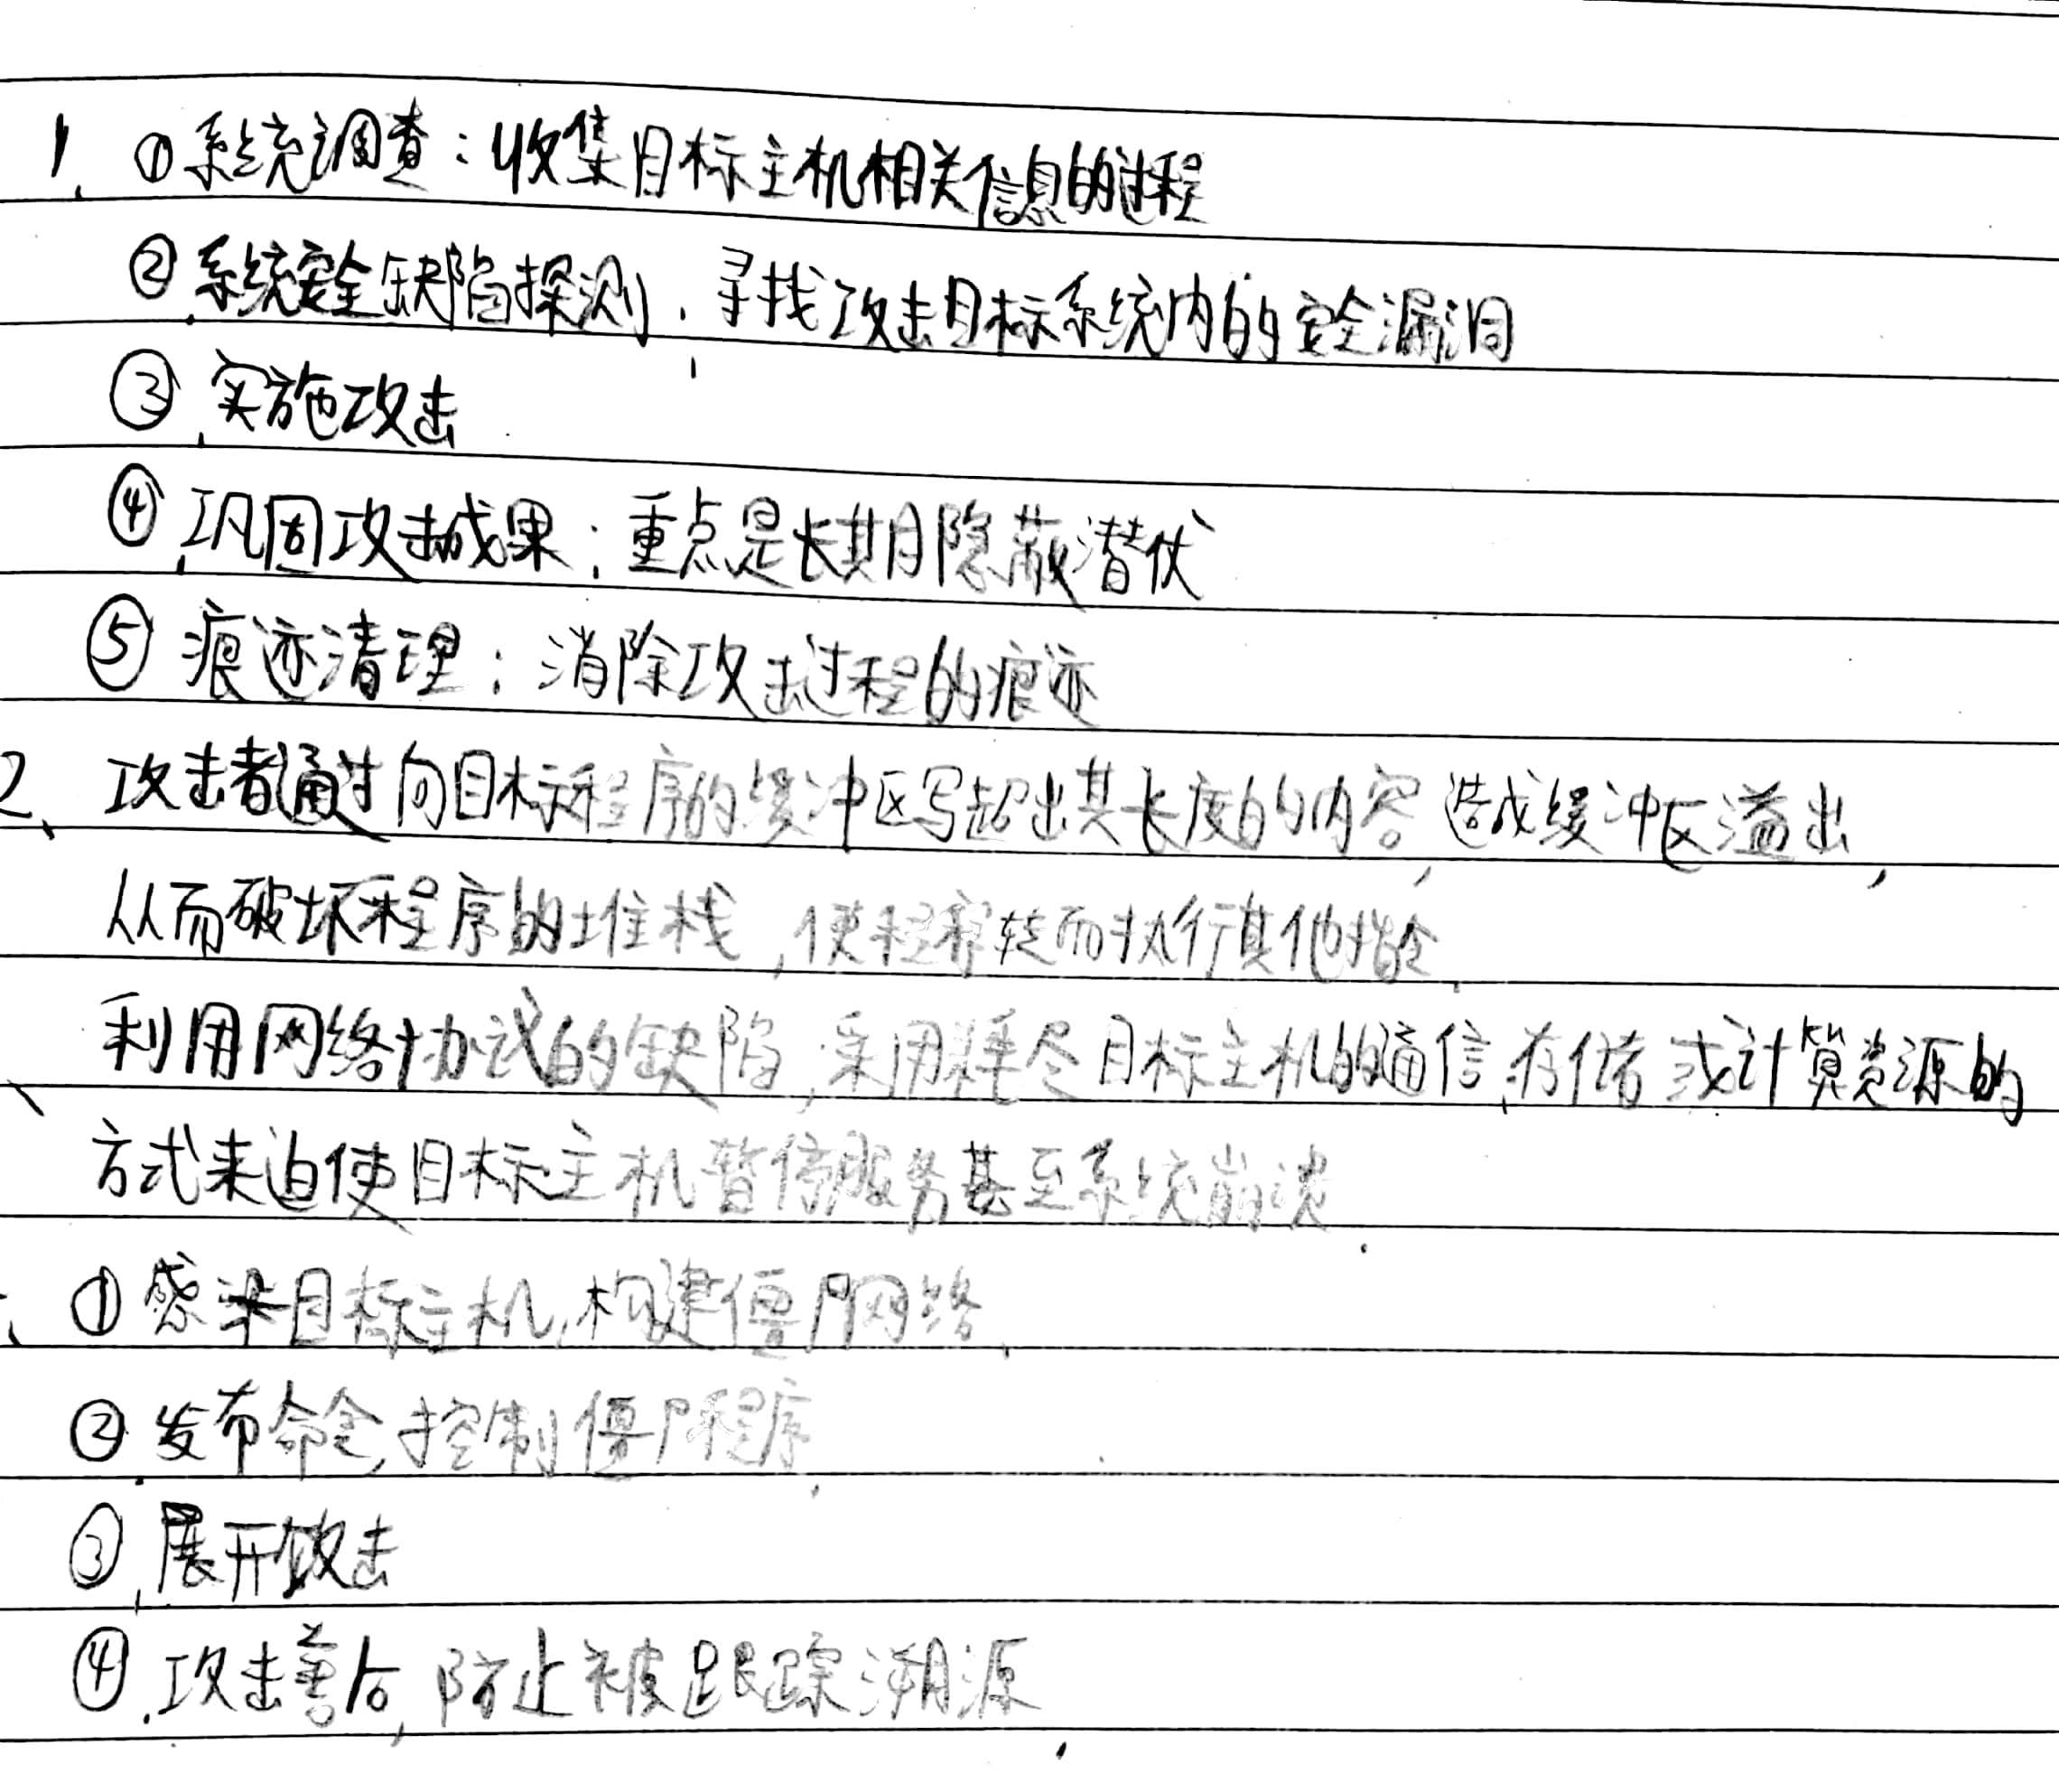 1、①系统调查：收集目标主机相关信息的过程
②系统安全缺陷探测，寻找攻击目标系统内的安全漏洞
③实施攻击
④巩固攻击成果：重点是长期隐蔽潜伏
⑤痕迹清理：消除攻击过程的痕迹
2、攻击者通过向目标程序的缓冲区写超出其长度的内容，造成缓冲区溢出，
从而破坏程序的堆栈，使程序转而执行其他指令
利用网络协议的缺陷，采用耗尽目标主机的通信、存储或计算资源的
方式来迫使目标主机暂停服务甚至系统崩溃.
①感染目标主机，构建僵尸网络，
②发布命令，控制僵尸程序，
③展开攻击
④攻击善后，防止被跟踪溯源，